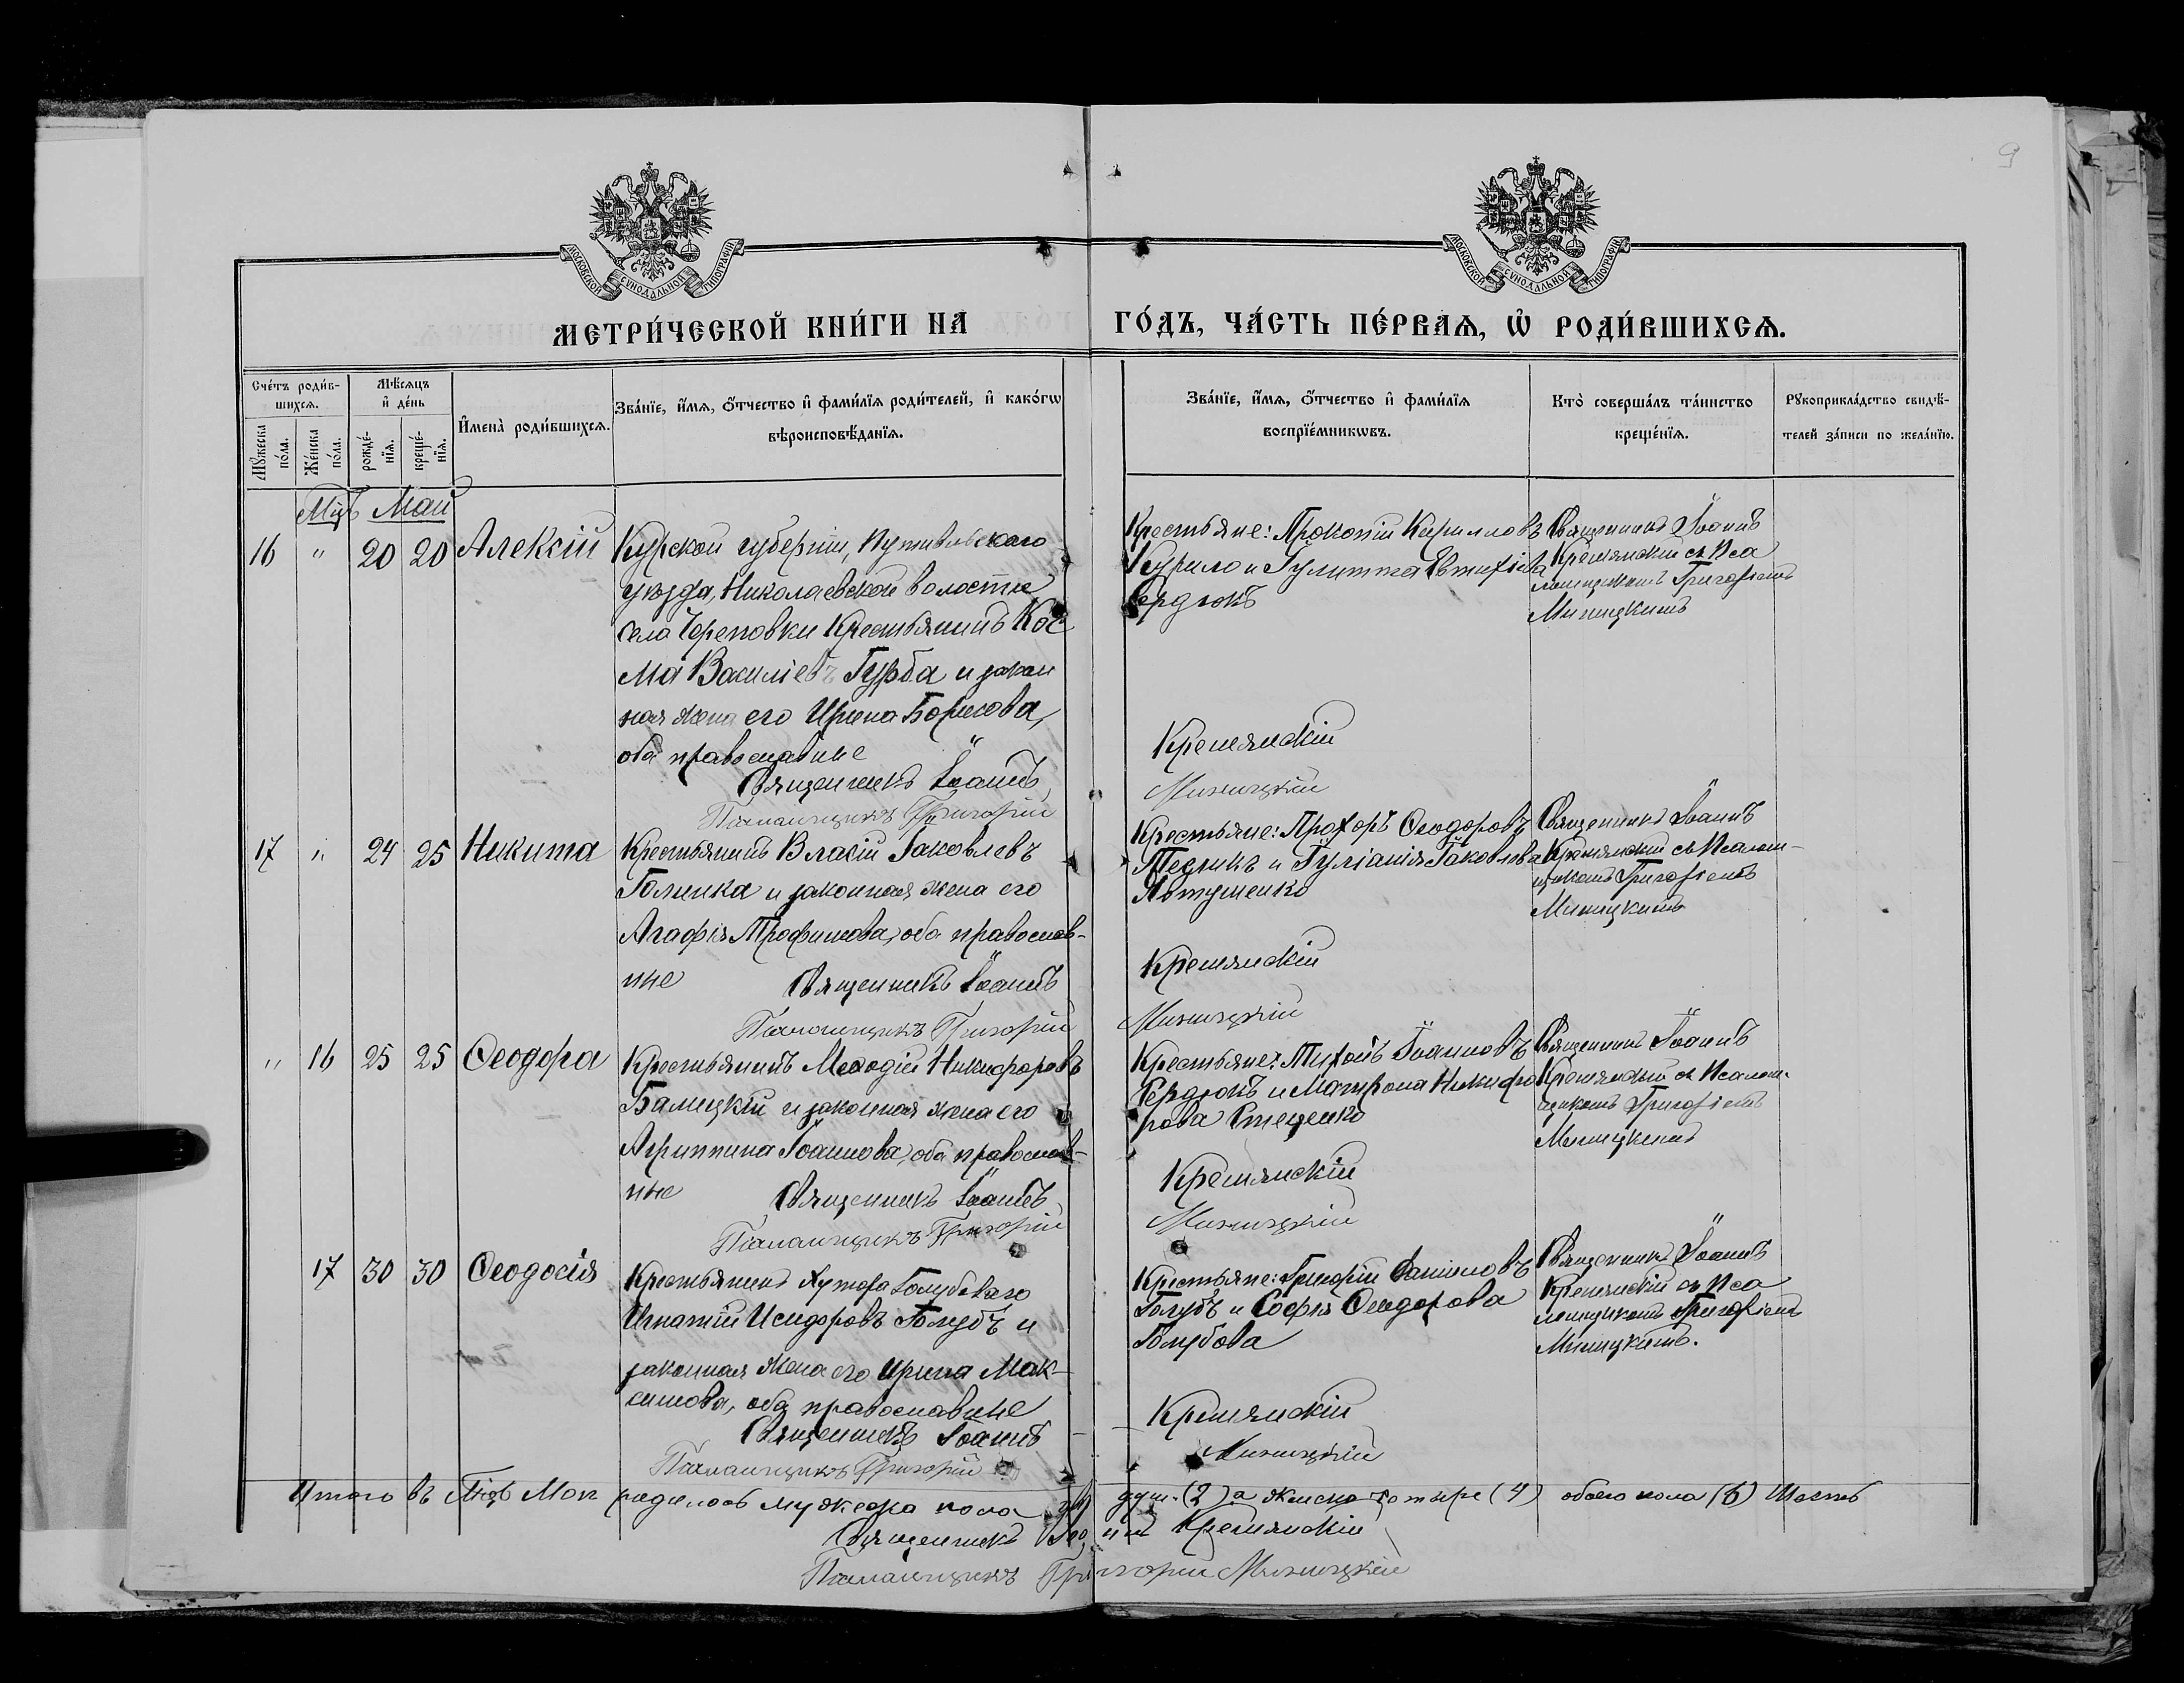 9
МОСКОВСКОЙ СѴНОДАЛЬНОЙ ТИПОГРАФІИ
МОСКОВСКОЙ СѴНОДАЛЬНОЙ ТИПОГРАФІИ
МЕТРИ́ЧЕСКОЙ КНИ́ГИ НА̀ ГО́ДЪ, ЧА́СТЬ ПЕ́РВАѦ, Ѡ҆ РОДИ́ВШИХСѦ.
Сче́тъ роди́в-
шихсѧ.
Мꙋ́жеска
по́ла.
Же́нска
по́ла.
Мѣ́сѧцъ
и҆ де́нь
рожде́-
нїѧ.
креще́-
нїѧ.
И҆мена̀ роди́вшихсѧ.
Зва́нїе, и҆́мѧ, ѻ҆́тчество и҆ фами́лїѧ роди́телей, и҆ како́гѡ
вѣроисповѣ́данїѧ.
Зва́нїе, и҆́мѧ, ѻ҆́тчество и҆ фами́лїѧ
воспрїе́мникѡвъ.
Кто̀ соверша́лъ та́инство
креще́нїѧ.
Рꙋкоприкла́дство свидѣ́-
телей за́писи по жела́нїю.
Мцъ Май
16 " 20 20 Алексій
Курской губерніи, Путивльскаго
уѣзда, Николаевской волости
села Череповки Крестьянинъ Кос
ма Василіевъ Гурба и закон
ная жена его Ирина Борисова,
оба православные
Священникъ Іоаннъ
Псаломщикъ Григорій
Крестьяне: Прокопій Кирилловъ
Курило и Гулитта Евтихіева
Сердюкъ
Кремянскій
Миницкій
Священникъ Іоаннъ
Кремянскій съ Пса
ломщикомъ Григоріемъ
Миницкимъ
17 " 24 25 Никита
Крестьянинъ Власій Іаковлевъ
Голинка и законная жена его
Агафія Трофимова, оба православ-
ные Священникъ Іоаннъ
Псаломщикъ Григорій
Крестьяне: Прохоръ Ѳеодоровъ
и Іуліанія Іаковлева
Автушенко
Кремянскій
Миницкій
Священникъ Іоаннъ
Кремянскій съ Псалом-
щикомъ Григоріемъ
Миницкимъ
" 16 25 25 Ѳеодора
Крестьянинъ Меѳодій Никифоровъ
Балицкій и законная жена его
Агриппина Іоаннова, оба православ-
ные Священникъ Іоаннъ
Псаломщикъ Григорій
Крестьяне: Тихонъ Іоанновъ
Сердюкъ и Матрона Никифо
рова Стеценко
Кремянскій
Миницкій
Священникъ Іоаннъ
Кремянскій съ Псалом-
щикомъ Григоріемъ
Миницкимъ
17 30 30 Ѳеодосія
Крестьянинъ Хутора Голубеваго
Игнатій Исидоровъ Голубъ и
законная жена его Ирина Мак-
симова, оба православные
Священникъ Іоаннъ
Псаломщикъ Григорій
Крестьяне: Григорій
Голубъ и Софія Ѳеодорова
Голубова
Кремянскій
Миницкій
Священникъ Іоаннъ
Кремянскій съ Пса
ломщикомъ Григоріемъ
Миницкимъ.
Итого въ Мцѣ Маѣ родилось мужеска пола двѣ душ. (2) а женска четыре (4) обоего пола (6) Шесть
Священникъ Іоаннъ Кремянскій
Псаломщикъ Григорій Миницкій